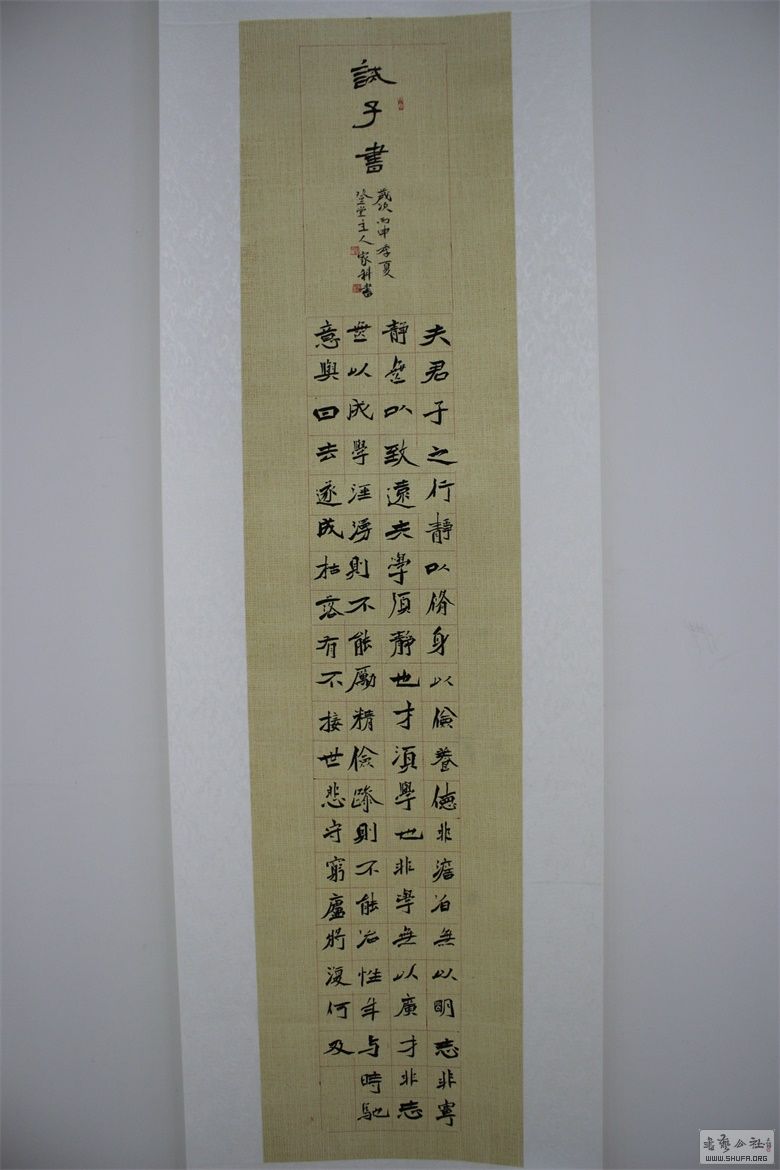 誡子書
歲次丙申季夏
堂主人家科書
夫君子之行靜以脩身以儉養德非澹泊無以明志非寧
靜無以致遠夫學須靜也才須學也非學無以廣才非志
無以成學淫則不能勵精儉躁則不能冶性年与時馳
意與日去遂成枯落有不接世悲守窮廬將復何及
书艺公社
WWW.SHUFA.ORG